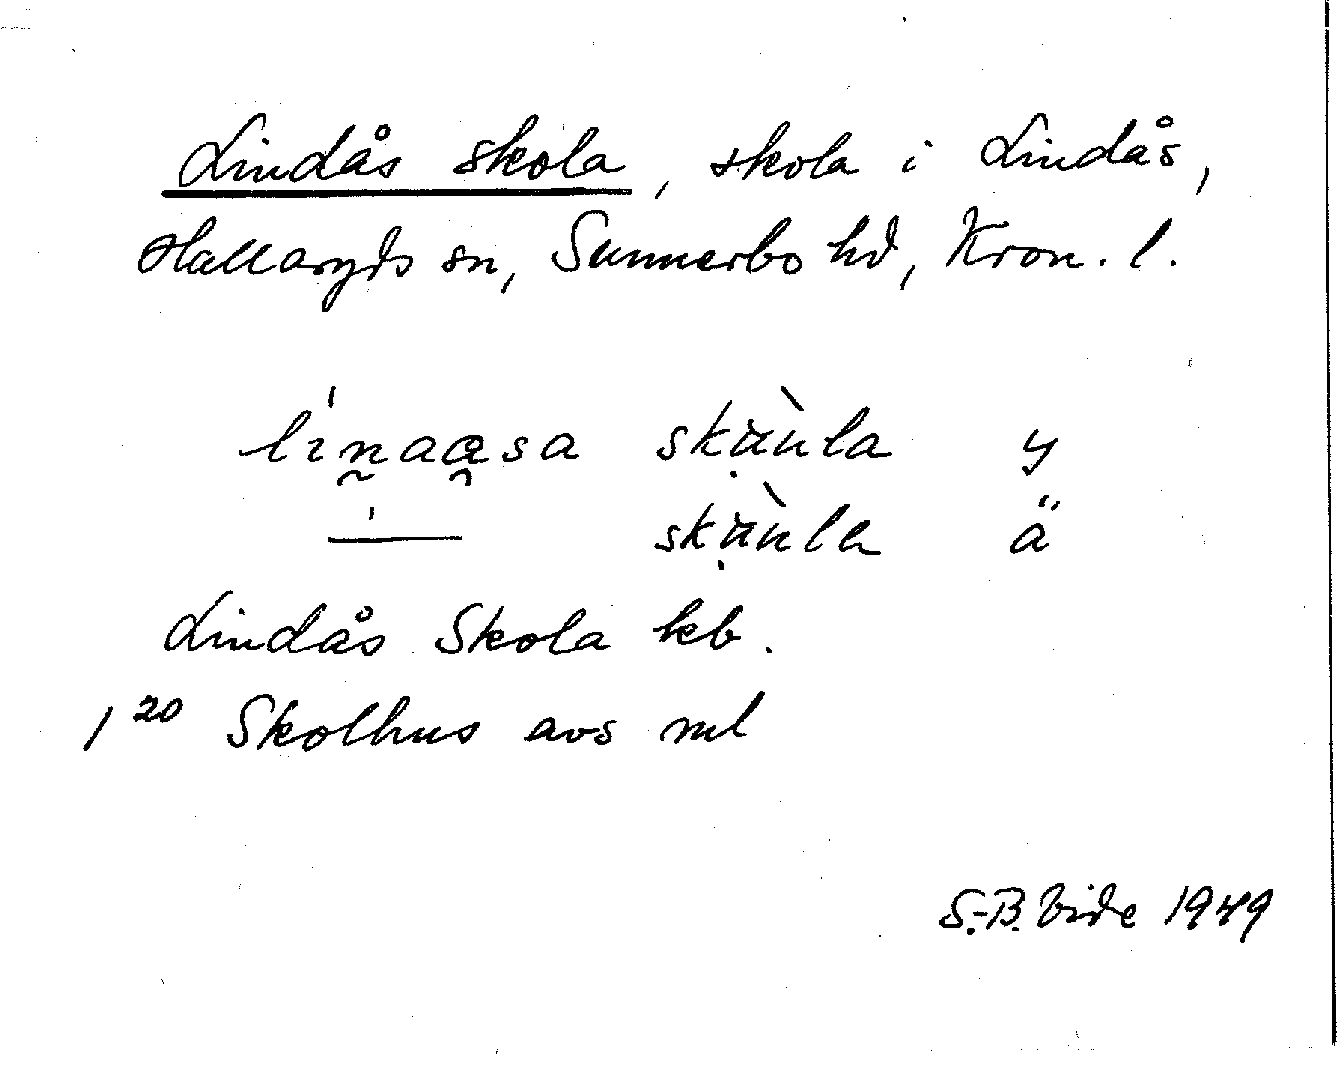 Lindås skola, skola i Lindås,
Hallaryds sn, Sunnerbo hd, Kron. l.
línaasa skæ̀ula y
— skæ̀ula ä
Lindås Skola kb.
1 20 Skolhus avs ml
S.-B. Vide 1949